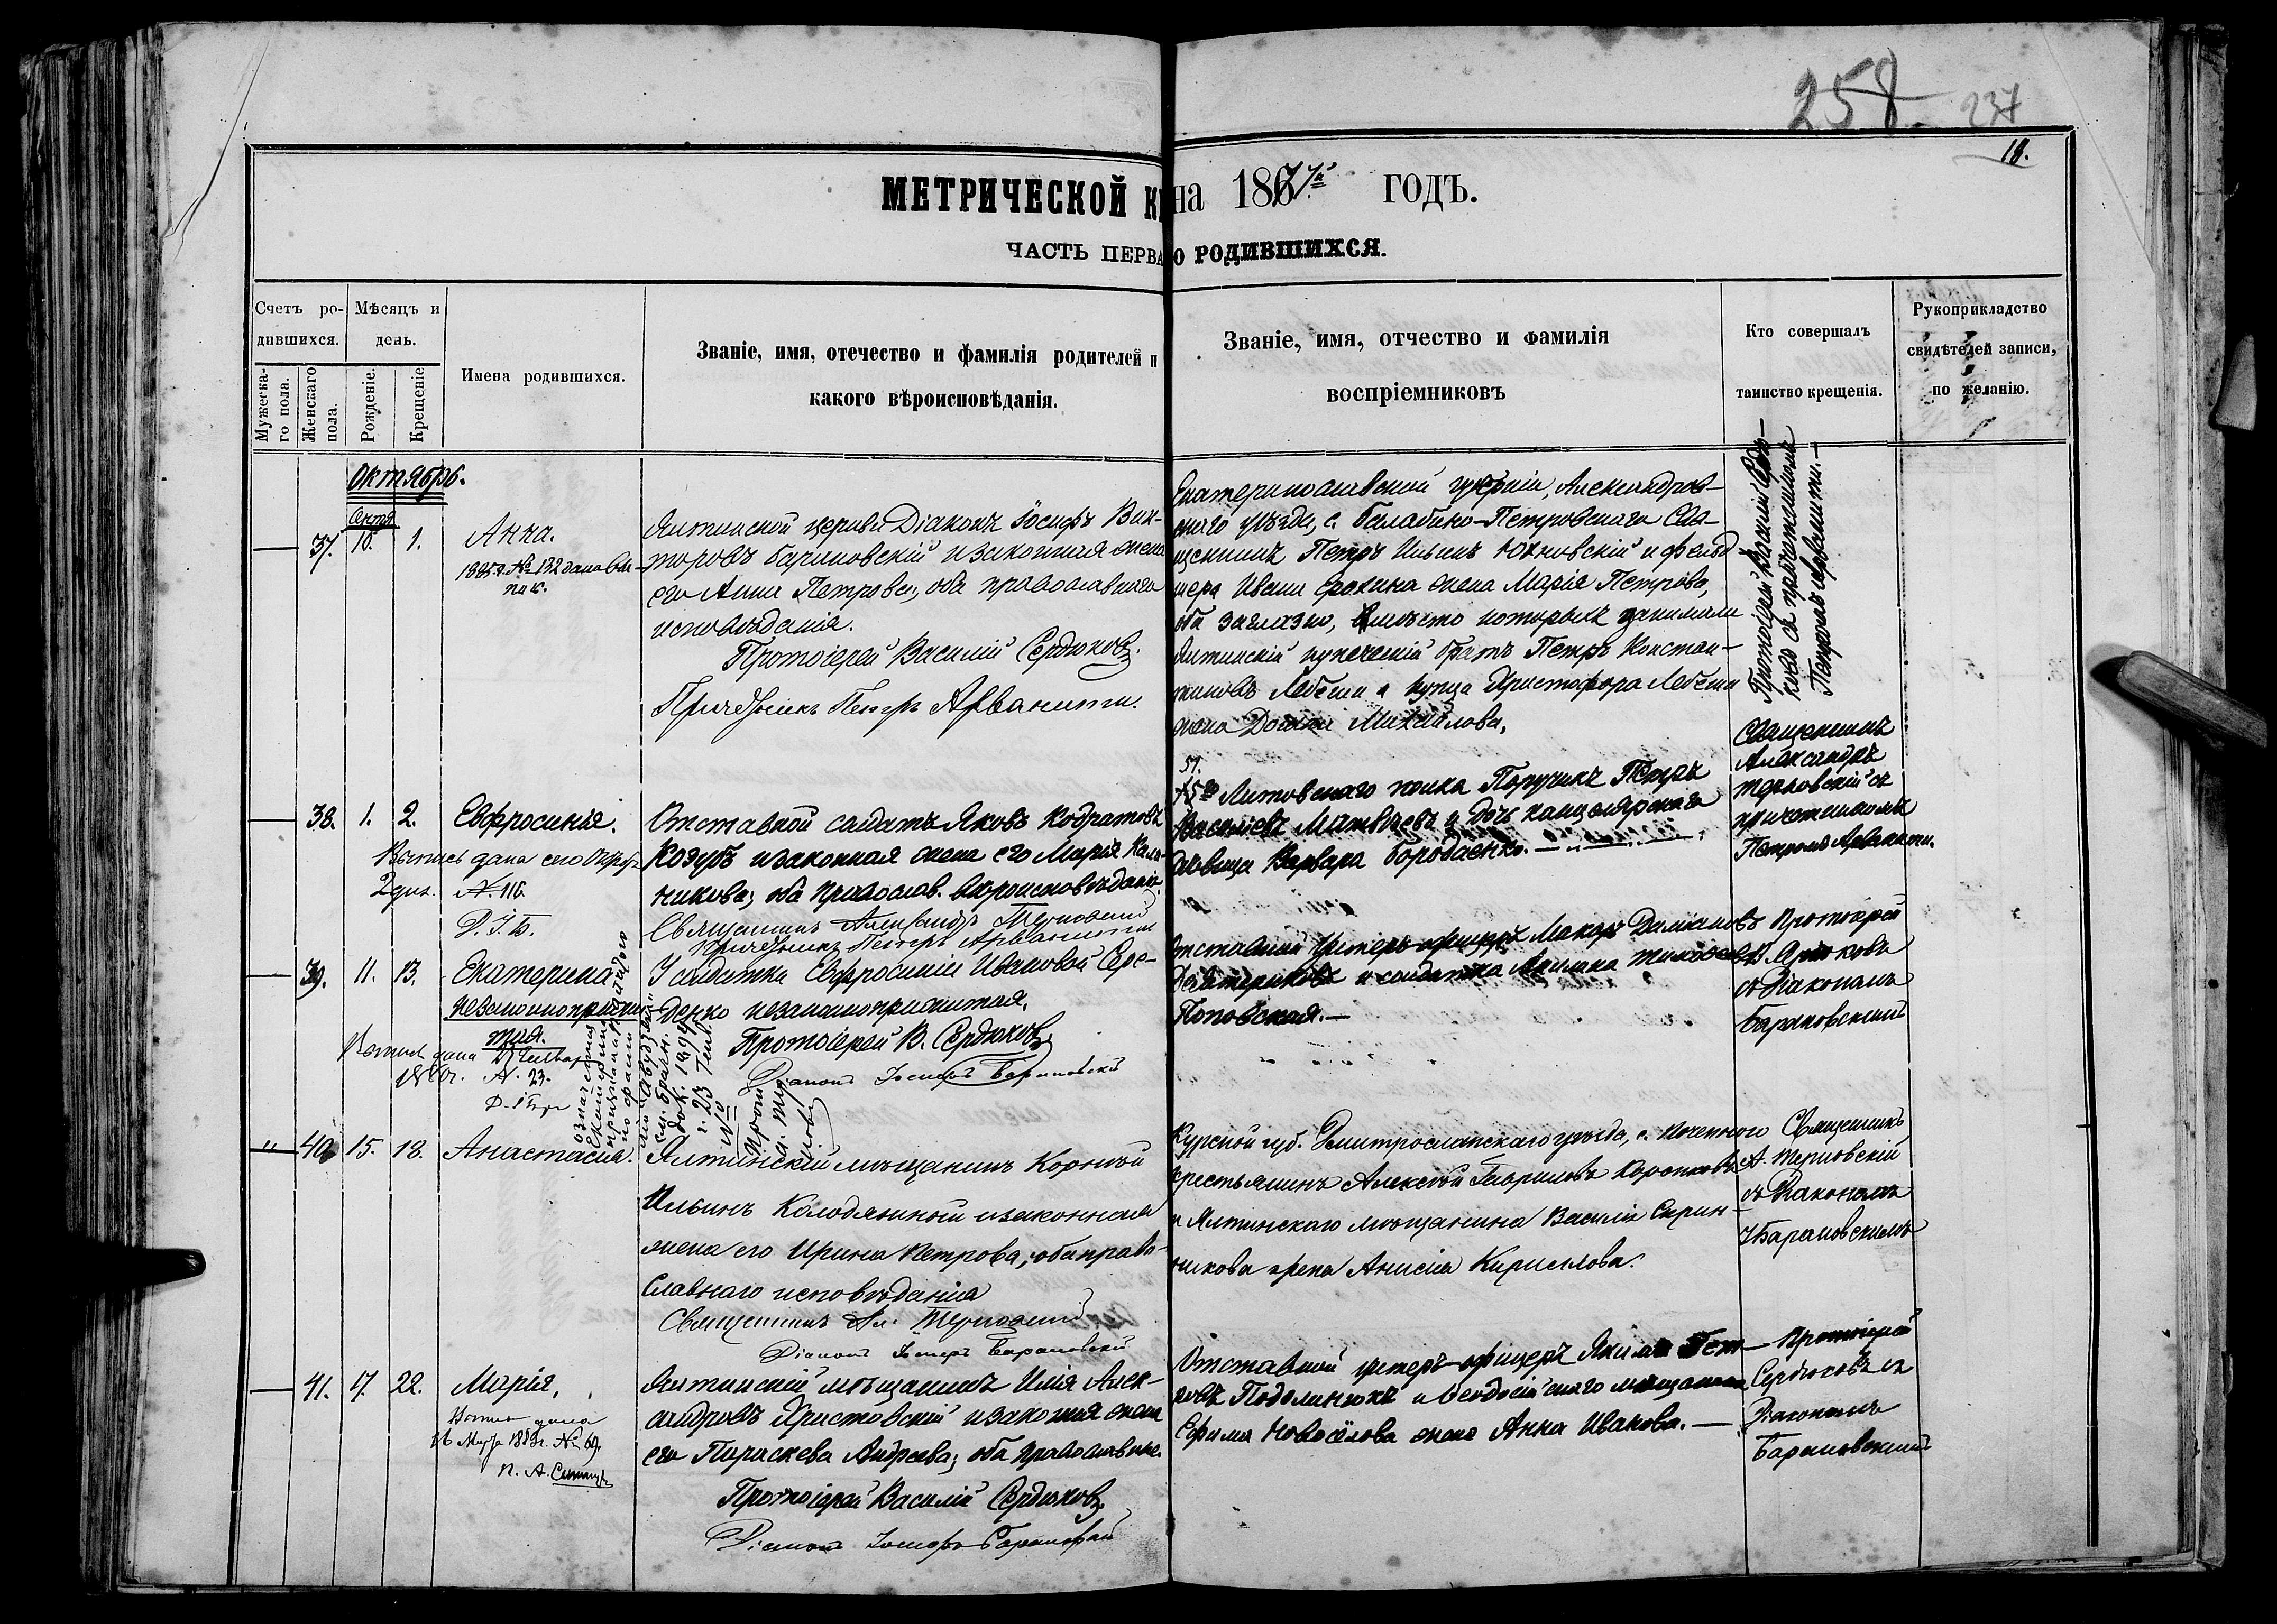 258. 237
18.
МЕТРИЧЕСКОЙ К
на 1877й ГОДЪ.
ЧАСТЬ ПЕРВА
О РОДИВШИХСЯ.
Счетъ ро-
дившихся.
Мужеска-
го пола.
Женскаго
пола.
Мѣсяцъ и
день.
Рожденіе.
Крещеніе
Имена родившихся.
Званіе, имя, отечество и фамилія родителей и
какого вѣроисповѣданія.
Званіе, имя, отчество и фамилія
воспріемниковъ
Кто совершалъ
таинство крещенія.
Рукоприкладство
свидѣтелей записи,
по желанію.
Октябрь.
37.
Сентя.
18.
1.
Анна.
1885 г. № 132 дана
Ялтинской церкви Діаконъ Іосифъ Вик-
торовъ Барановскій и законная жена
его Анна Петрова, оба православнаго
исповѣданія.
Протоіерей Василій Сердюковъ.
Причетникъ Петръ Арванити.
Екатеринославской губерніи, Александров-
скаго уѣзда, с. Балабино-Петровскаго Свя-
щенникъ Петръ Ильинъ Юхновскій и фельд
шера Ивана Ерохина жена Марія Петрова,
оба заглазно, вмѣсто которыхъ занимали
Ялтинскій купеческій братъ Петръ Констан-
тиновъ Лебеши и купца Христофора Лебеши
жена Михайлова.
Протоіерей Василій Сердю-
ковъ съ причетникомъ
Петромъ Арванити.
38.
1.
2.
Евфросинія.
Выпись дана
№ 116.
Отставной солдатъ Яковъ Кодратовъ
Козубъ и законная жена его Марія Кали-
никова; оба православ. вѣроисповѣданія.
Священникъ Александръ Терновскій
Причетникъ Петръ Арванити
51.
Литовскаго полка Поручикъ Петръ
Васильевъ Матвѣевъ и дочь канцелярскаго
Варвара Бородаенко.
Священникъ
Александръ
Терновскій съ
причетникомъ
Петромъ Арванити.
39.
11.
13.
Екатерина
незаконноприжи-
тая.
Выпись дана
№ 23.
У солдатки Евфросиніи Ивановой Сере-
денко незаконноприжитая.
Протоіерей В. Сердюковъ
Діаконъ Іосифъ Барановскій
Отставной Унтеръ-офицеръ Макаръ Даміановъ
и солдатка
Поповская.
Протоіерей
В. Сердюковъ
съ Діакономъ
Барановскимъ
40.
15.
18.
Анастасія.
Ялтинскій мѣщанинъ Корнѣй
Ильинъ Колодяжный и законная
жена его Ирина Петрова, оба право-
славнаго исповѣданія
Священникъ Ал. Терновскій
Діаконъ Іосифъ Барановскій
Курской губ. Дмитрославскаго уѣзда, с.
крестьянинъ Алексѣй Гавриловъ Коростковъ
и Ялтинскаго мѣщанина Василія Скрин-
никова жена Анисія Кириллова.
Священникъ
А. Терновскій
съ Діакономъ
І. Барановскимъ
41.
17.
22.
Марія.
Выпись дана
16 Марта 1893 г. № 69.
Ялтинскій мѣщанинъ Илія Алек-
сандровъ Христовскій и законная жена
его Параскева Андреева; оба православные.
Протоіерей Василій Сердюковъ
Діаконъ Іосифъ Барановскій
Отставной унтеръ-офицеръ Якимъ Пет-
ровъ Подолинюкъ и Ѳеодосійскаго мѣщанина
Ефима Новосёлова жена Анна Иванова.
Протоіерей
Сердюковъ съ
Діакономъ
Барановскимъ